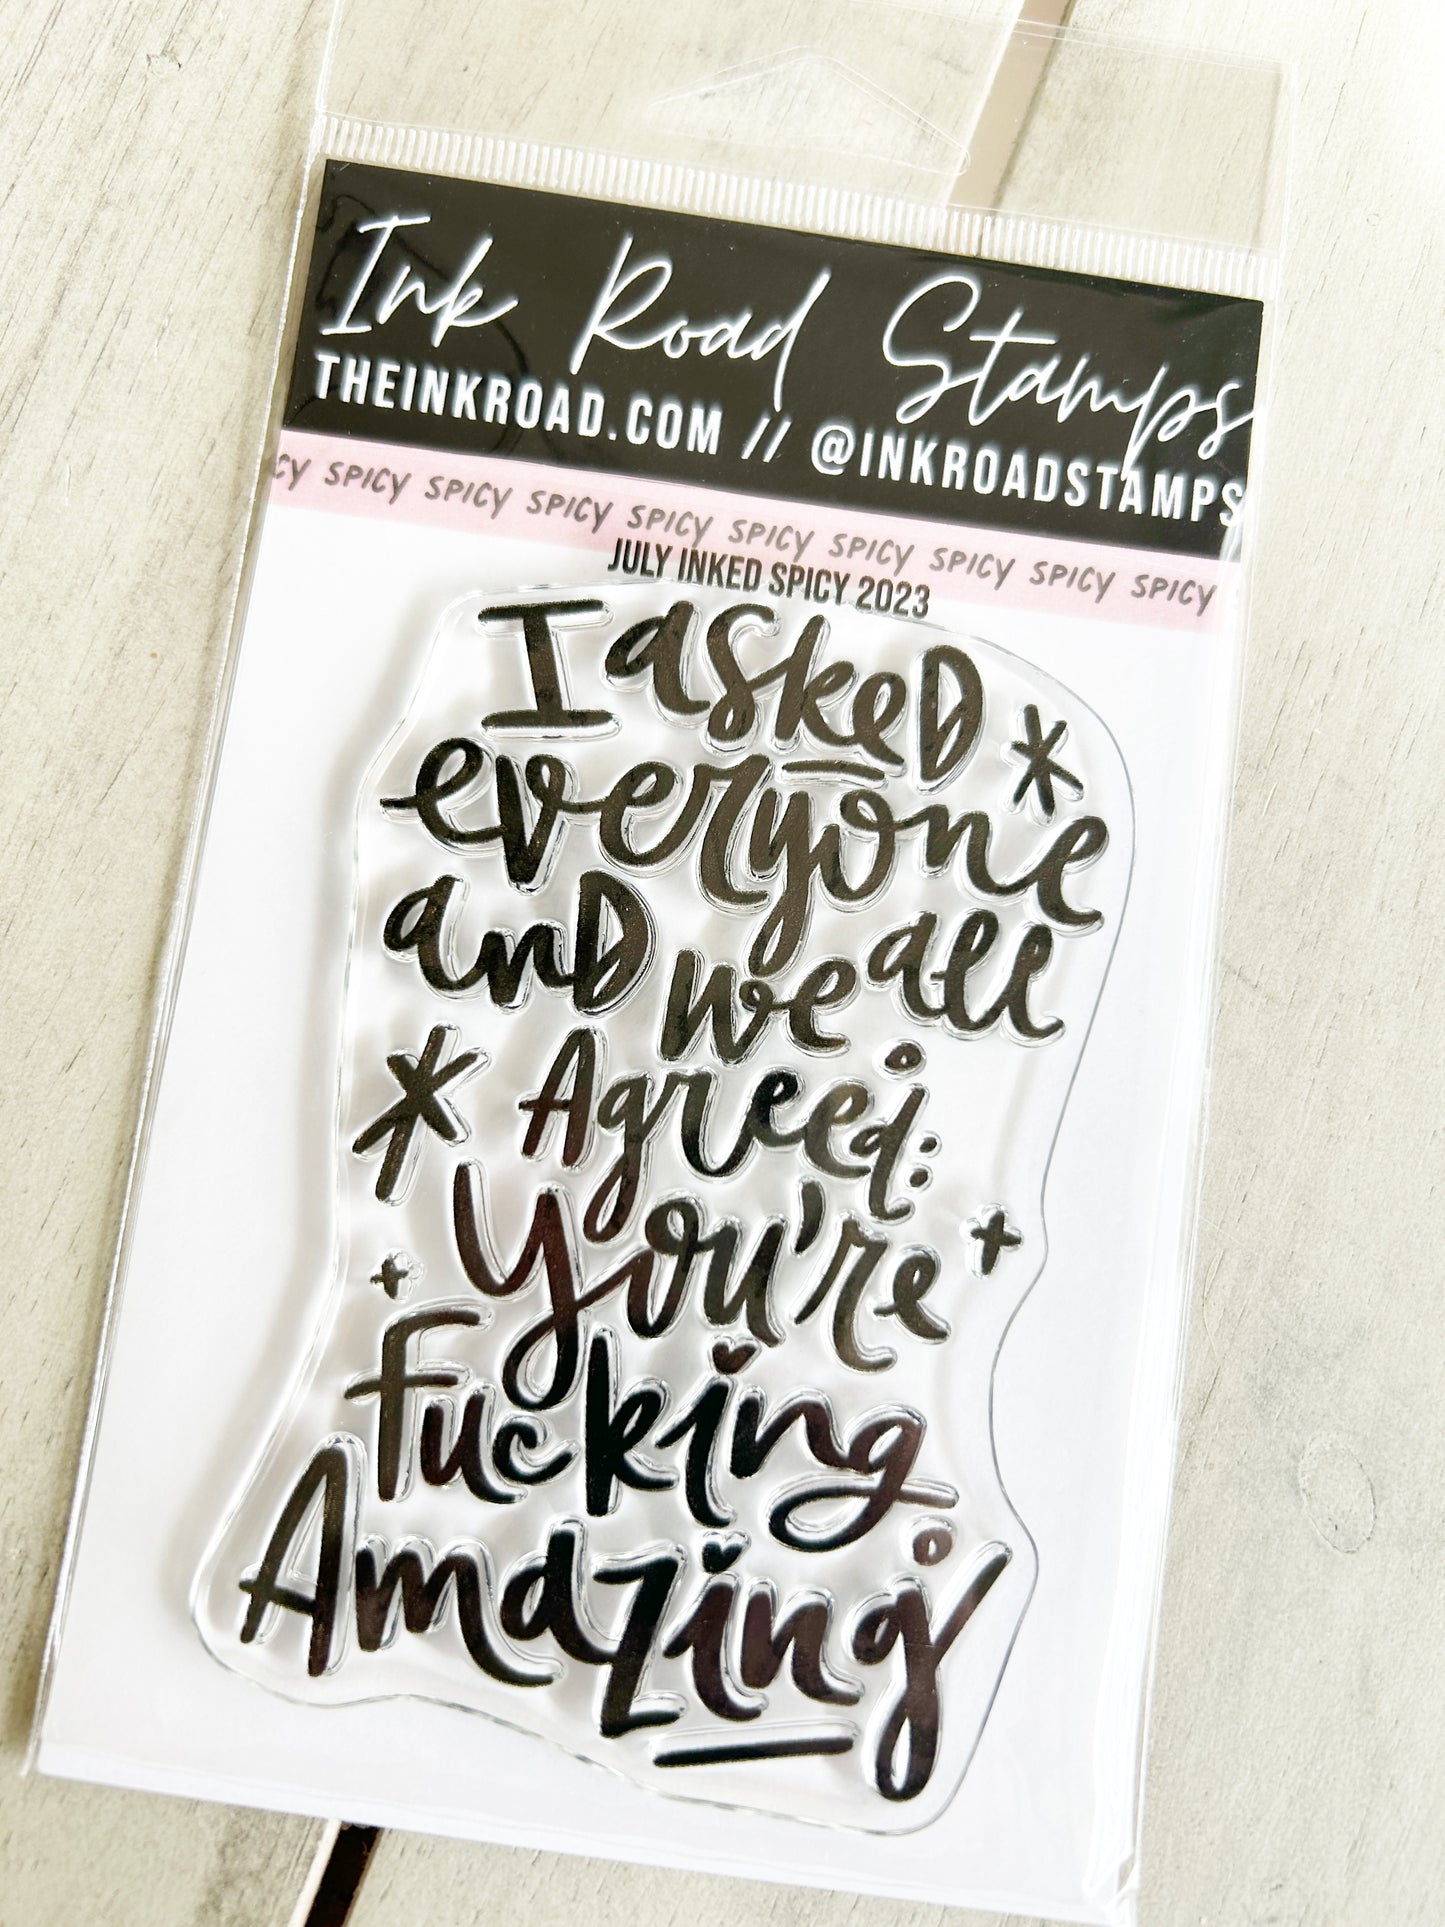 Ink Road Stamps
THEINKROAD.COM // @INKROADSTAMPS
CY SPICY SPICY SPICY SPICY SPICY SPICY SPICY SPICY SPICY
JULY INKED SPICY 2023
I askeD
everyone
anD we all
Agreed:
You're
Fucking
Amazing